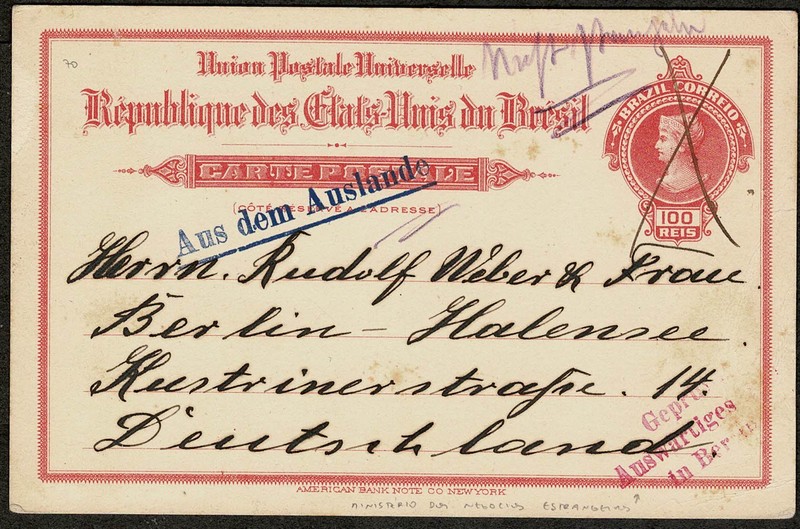 70
Union Postale Universelle
République des Etats-Unis du Brésil
CARTE POSTALE
(CÔTÉ RÉSERVÉ A L'ADRESSE)
BRAZIL CORREIO
100
REIS
Aus dem Auslande
Herrn. Rudolf Weber & Frau.
Berlin - Halensee.
Küstrinerstraße. 14.
Deutschland
Auswärtiges
in
AMERICAN BANK NOTE CO NEW YORK
MINISTÉRIO DOS NEGOCIOS ESTRANGEIROS